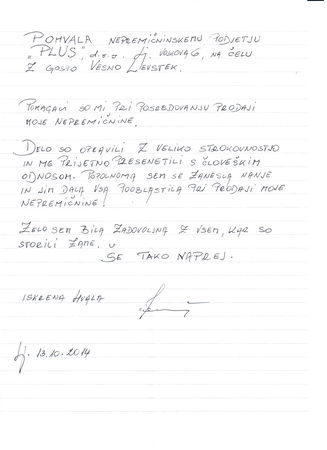 POHVALA NEPREMIČNINSKEMU PODJETJU
"PLUS", d.o.o. Lj. VOŠOVA 6, NA ČELU
Z GOSPO VESNO LEVSTEK.
POMAGALI SO MI PRI POSREDOVANJU PRODAJI
MOJE NEPREMIČNINE.
DELO SO OPRAVILI Z VELIKO STROKOVNOSTJO
IN ME PRIJETNO PRESENETILI S ČLOVEŠKIM
ODNOSOM. POPOLNOMA SEM SE ZANESLA NANJE
IN JIM DALA VSA POOBLASTILA PRI PRODAJI MOJE
NEPREMIČNINE!
ZELO SEM BILA ZADOVOLJNA Z VSEM, KAR SO
STORILI ZAME.
ŠE TAKO NAPREJ.
ISKRENA HVALA
Lj. 13.10.2014